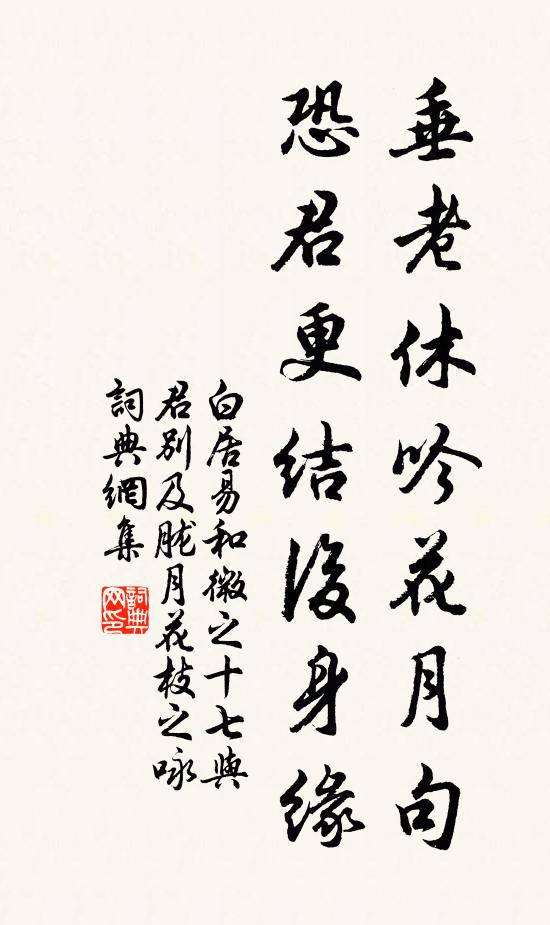 垂老休吟花月句
恐君更結後身緣
白居易和微之十七與
君別及朧月花枝之咏
詞典網集
詞典网印